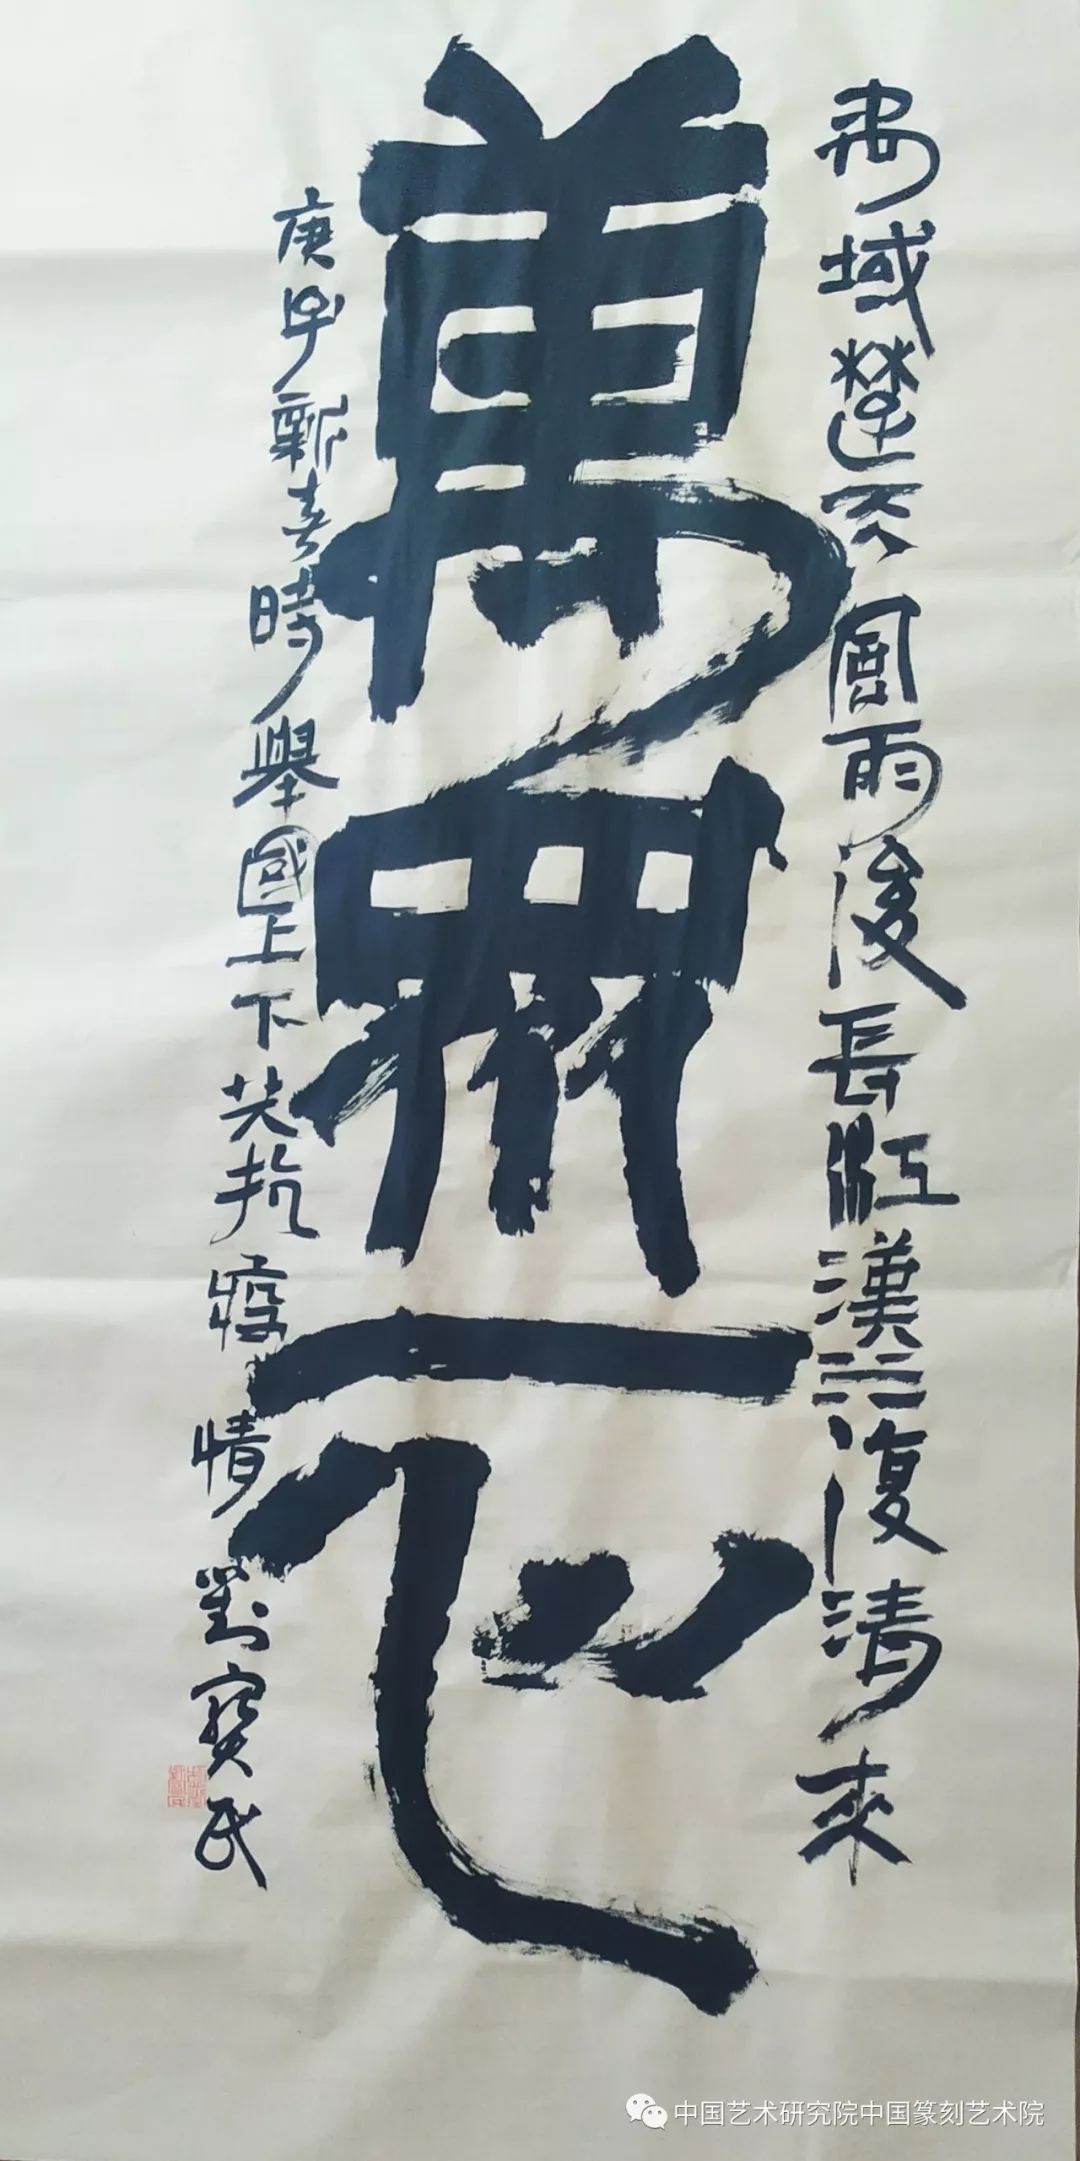 禹域楚天風雨後長江漢水復清來
萬衆一心
庚子新春時舉國上下共抗疫情劉寶民
中国艺术研究院中国篆刻艺术院